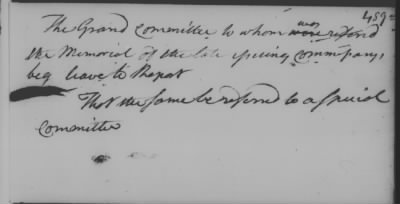 489
The Grand Committee to whom was refered
the Memorial of the late issuing Commissarys,
beg leave to Report
That the same be referred to a special
Committee